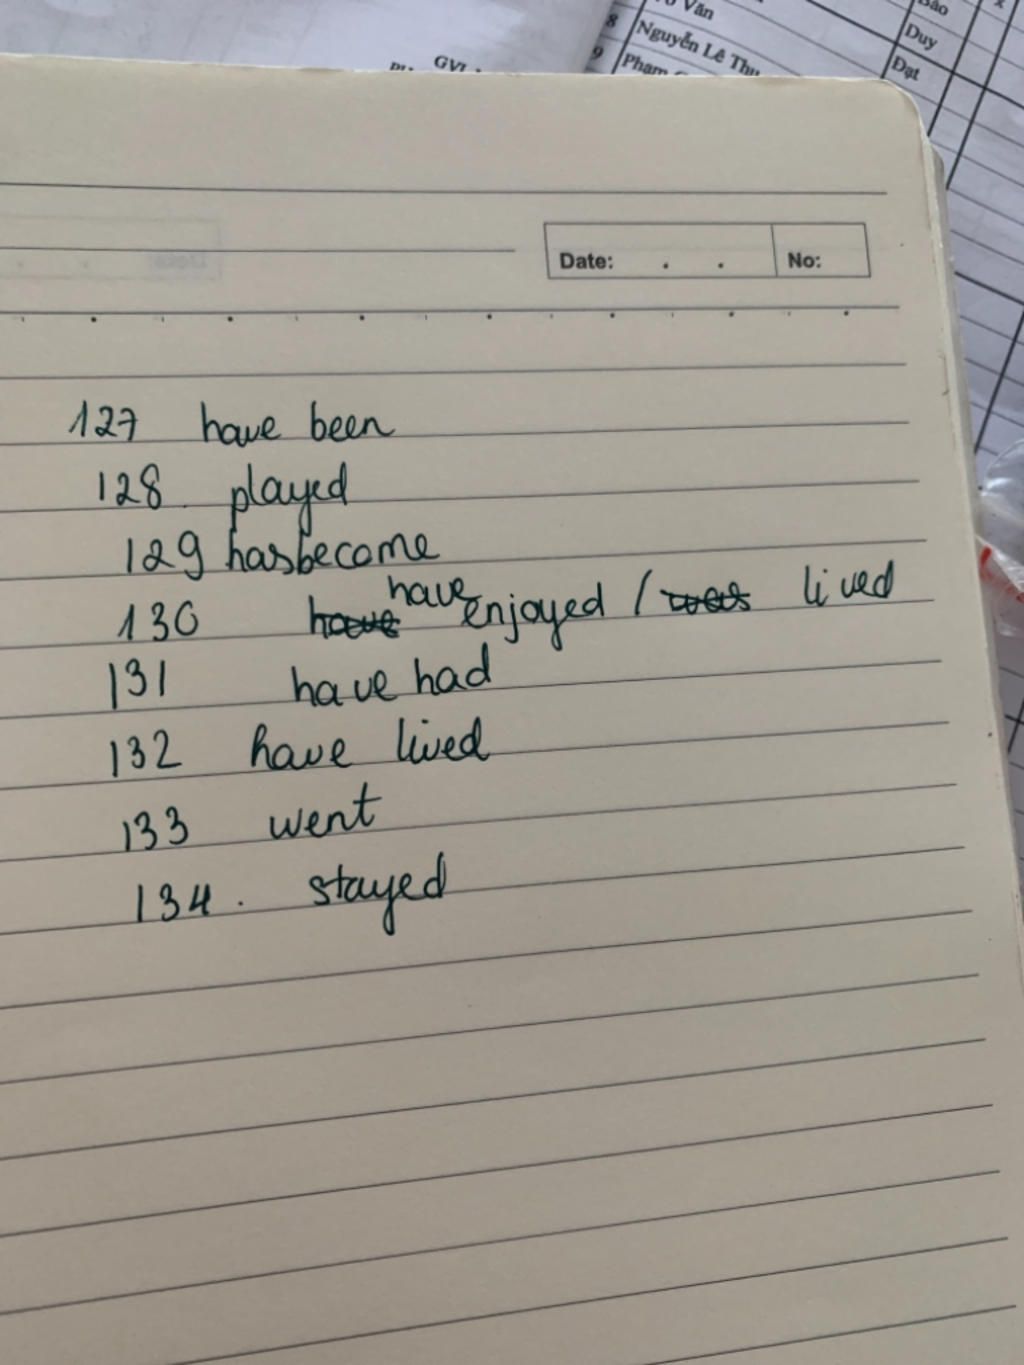 Văn
Bảo
8 Nguyễn Lê Thu
Duy
9 Phạm
Đạt
Date: . . No:
127 have been
128. played
129 has become
130 have have enjoyed / was lived
131 have had
132 have lived
133 went
134. stayed